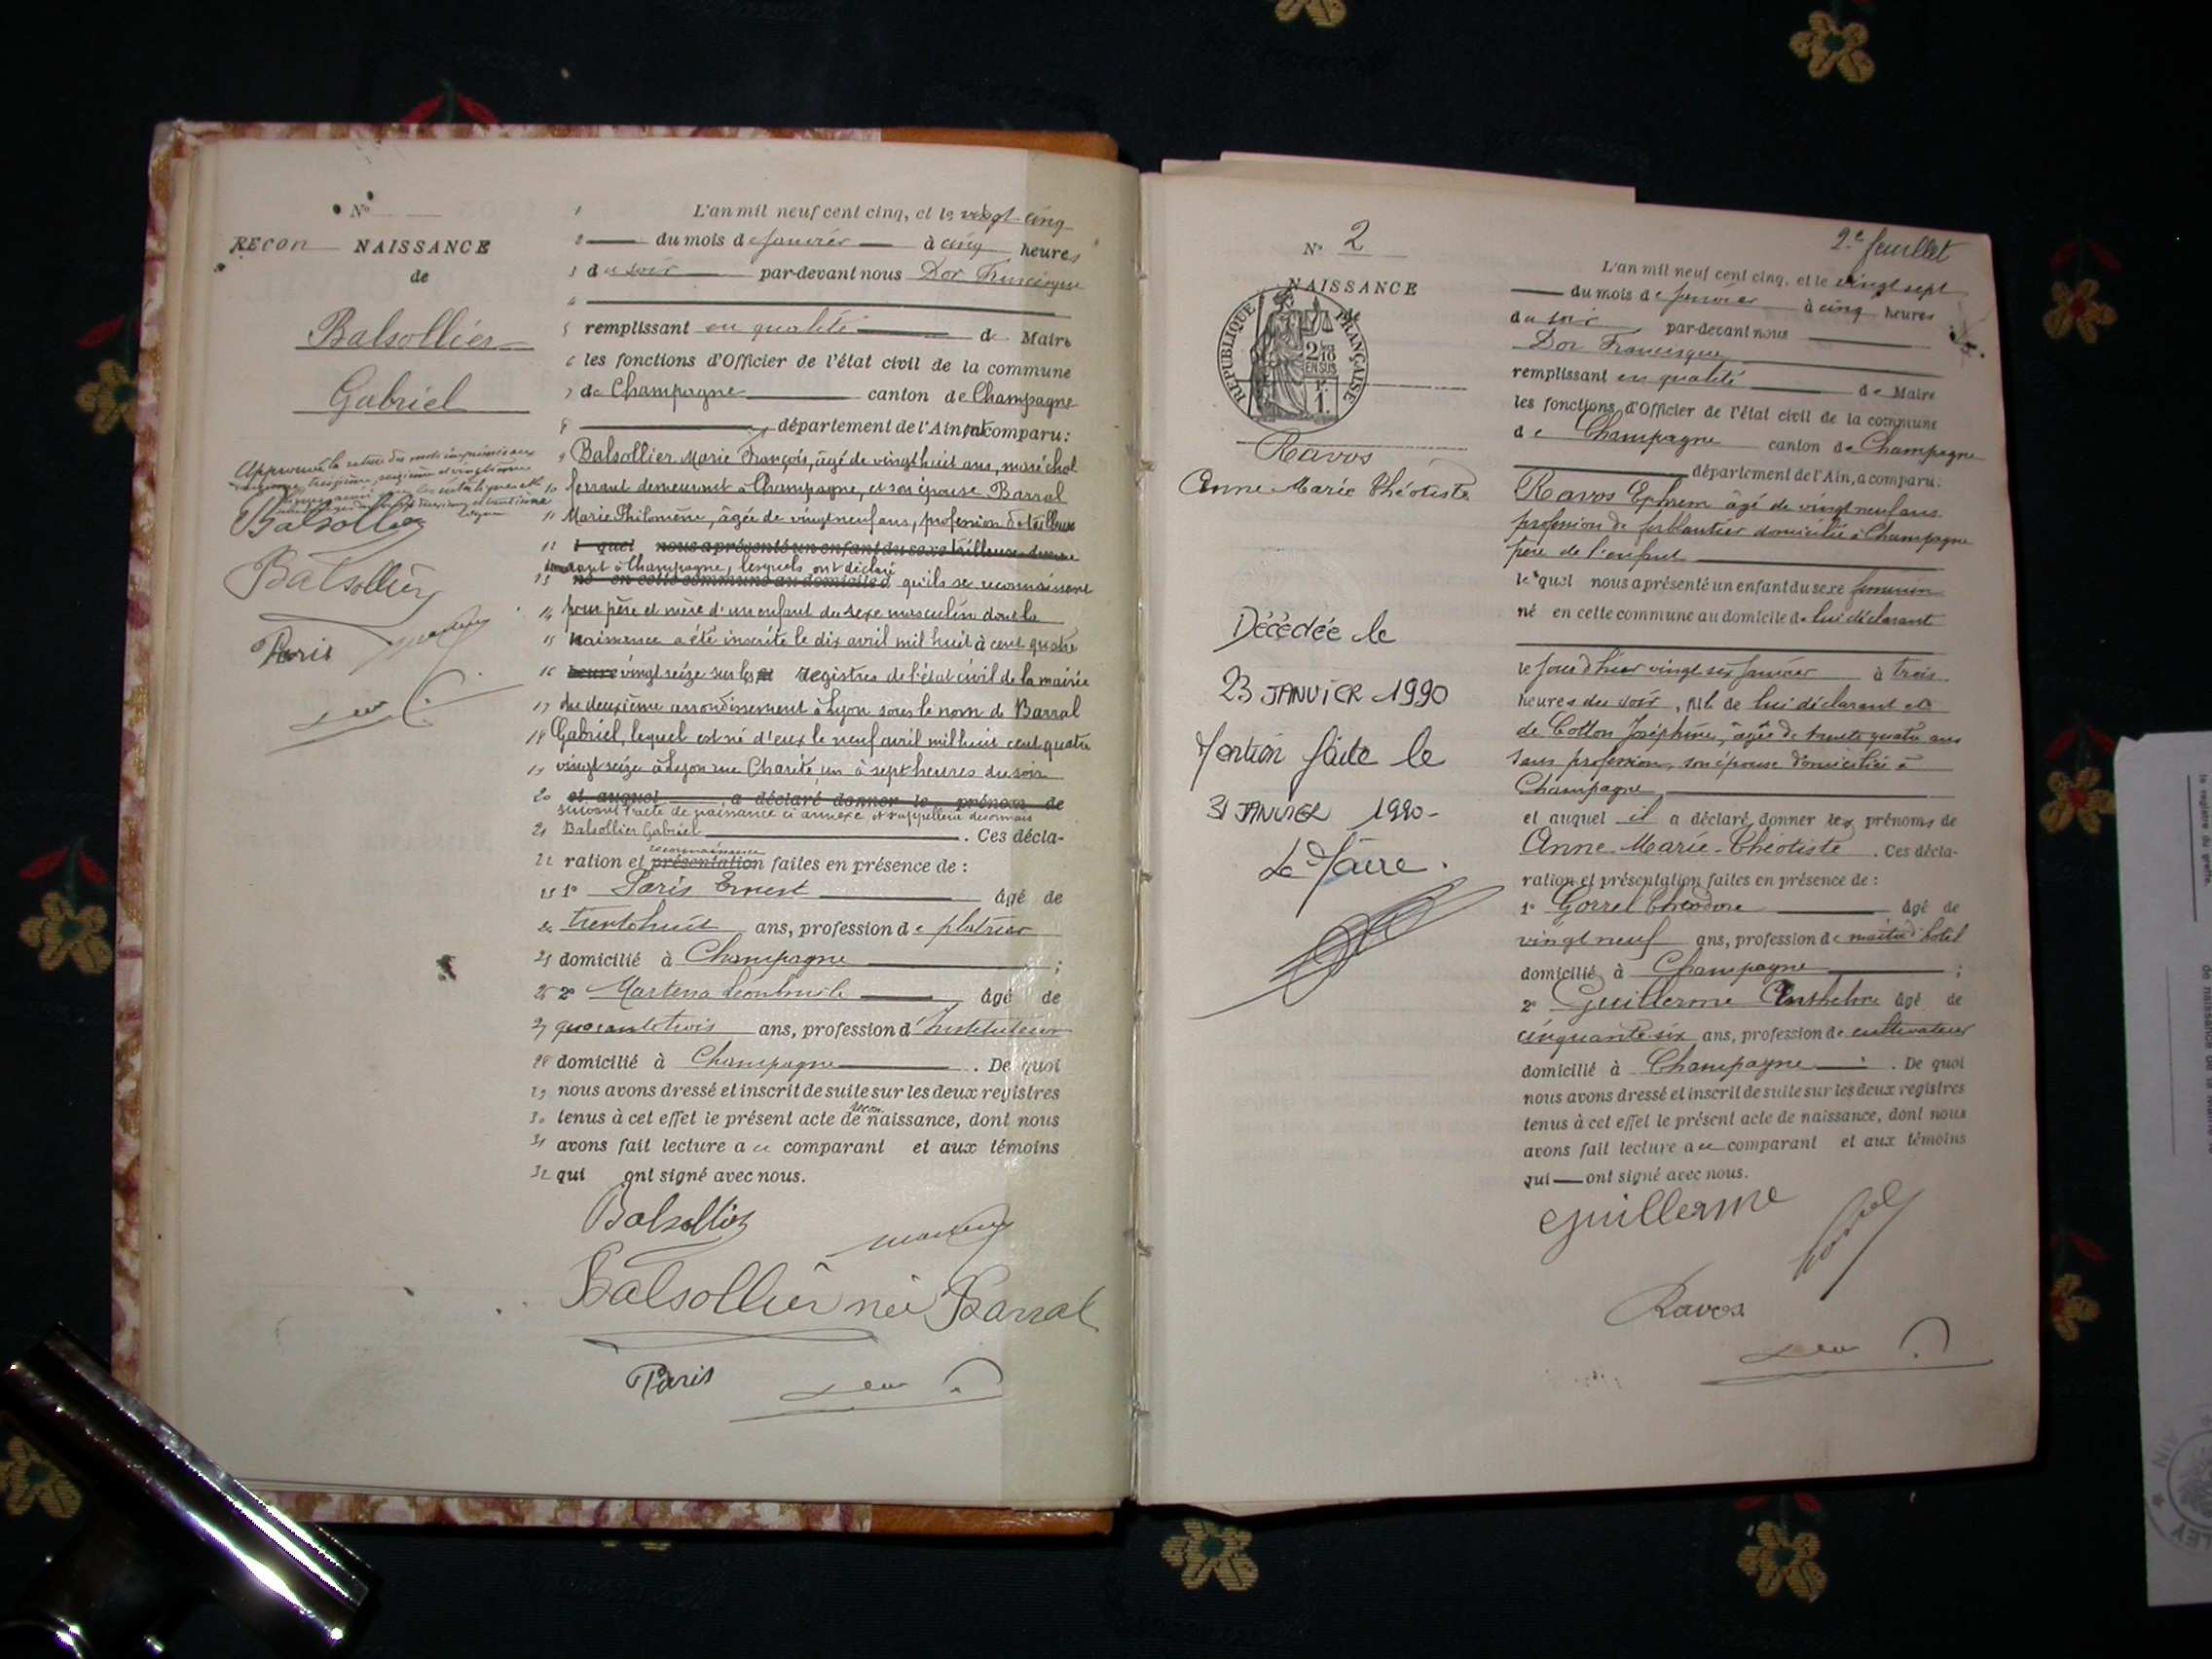 N°
RECON NAISSANCE
de
Balsollier
Gabriel
Balsollier
Balsollier
Paris
1 L'an mil neuf cent cinq, et le vingt cinq
2 du mois de Janvier à cinq heures
3 du soir par-devant nous Dor Francisque
4
5 remplissant en qualité de Maire
6 les fonctions d'Officier de l'état civil de la commune
7 de Champagne canton de Champagne
8 département de l'Ain, ont comparu:
9 Balsollier Marie François, âgé de vingt huit ans, maréchal
10 ferrant demeurant à Champagne, et son épouse Barral
11 Marie Philomène, âgée de vingt neuf ans, profession de tailleuse
12 l quel nous a présenté un enfant du sexe tailleuse demeu
rant à Champagne, lesquels ont déclaré
13 né en cette commune au domicile d qu'ils se reconnaissent
14 pour père et mère d'un enfant du sexe masculin dont la
15 naissance a été inscrite le dix avril mil huit à cent quatre
16 heure vingt seize sur les registres de l'état civil de la mairie
17 du deuxième arrondissement à Lyon sous le nom de Barral
18 Gabriel, lequel est né d'eux le neuf avril mil huit cent quatre
19 vingt seize à Lyon rue Charité, un à sept heures du soir
20 et auquel a déclaré donner le prénom de
suivant l'acte de naissance ci annexé et s'appellera désormais
21 Balsollier Gabriel . Ces décla-
reconnaissance
22 ration et présentation faites en présence de :
23 1° Paris Ernest âgé de
24 trente huit ans, profession de plâtrier
25 domicilié à Champagne ;
26 2° Martena âgé de
27 quarante trois ans, profession d'Instituteur
28 domicilié à Champagne . De quoi
29 nous avons dressé et inscrit de suite sur les deux registres
30 tenus à cet effet le présent acte de recon naissance, dont nous
31 avons fait lecture au comparant et aux témoins
32 qui ont signé avec nous.
Balsollier
Balsollier née Barral
Paris
2e feuillet
N° 2
NAISSANCE
de
RÉPUBLIQUE FRANÇAISE
2/10 EN SUS
1F.
Ravos
Anne Marie Théotiste
Décédée le
23 JANVIER 1990
Mention faite le
31 JANVIER 1990-
Le Maire.
L'an mil neuf cent cinq, et le vingt sept
du mois de Janvier à cinq heures
du soir par-devant nous
Dor Francisque
remplissant en qualité de Maire
les fonctions d'Officier de l'état civil de la commune
de Champagne canton de Champagne
département de l'Ain, a comparu:
Ravos Ephrem âgé de vingt neuf ans
profession de ferblantier domicilié à Champagne
père de l'enfant
lequel nous a présenté un enfant du sexe féminin
né en cette commune au domicile de lui déclarant
le jour d'hier vingt six Janvier à trois
heures du soir, fils de lui déclarant et
de Cotton Joséphine, âgée de trente quatre ans
sans profession, son épouse domiciliée à
Champagne
et auquel il a déclaré donner les prénoms de
Anne-Marie-Théotiste . Ces décla-
ration et présentation faites en présence de :
1° Gorrel Théodore âgé de
vingt neuf ans, profession de maître d'hôtel
domicilié à Champagne ;
2° Guillerme Anthelme âgé de
cinquante six ans, profession de cultivateur
domicilié à Champagne . De quoi
nous avons dressé et inscrit de suite sur les deux registres
tenus à cet effet le présent acte de naissance, dont nous
avons fait lecture au comparant et aux témoins
qui ont signé avec nous.
Guillerme
Ravos